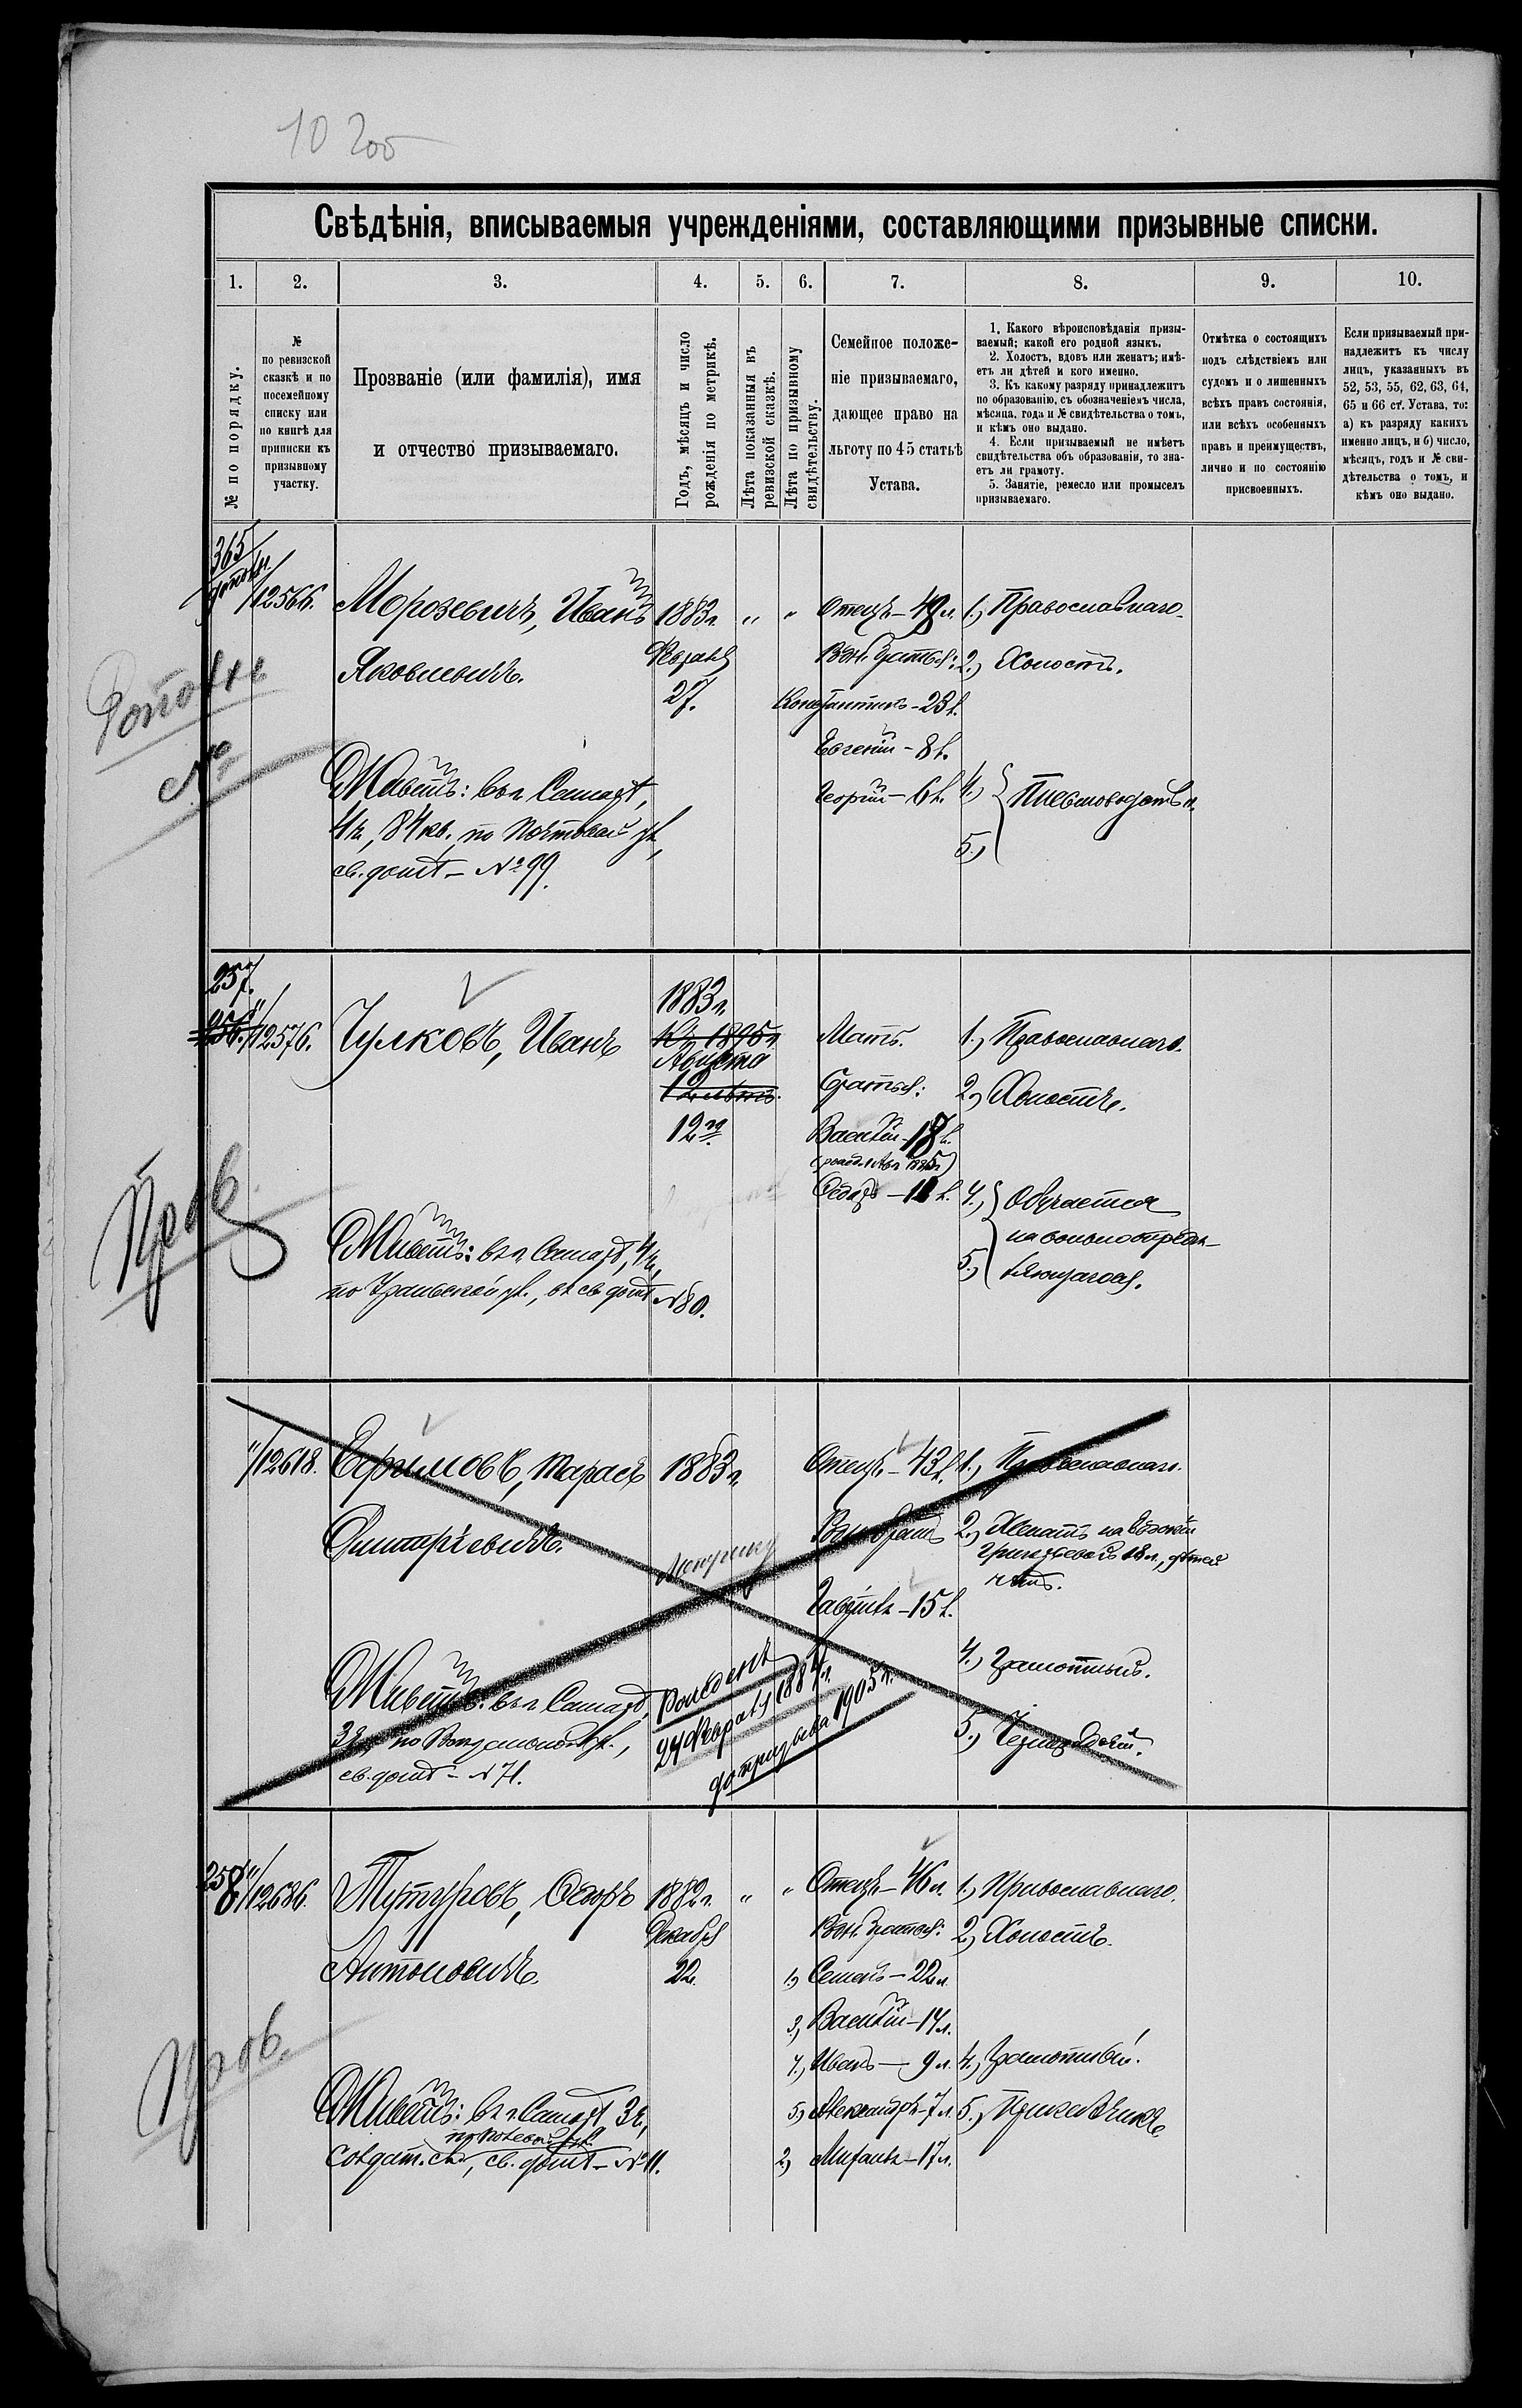 10 200
Свѣдѣнія, вписываемыя учрежденіями, составляющими призывные списки.
1. 2. 3. 4. 5. 6. 7. 8. 9. 10.
№ по порядку.
№
по ревизской
сказкѣ и по
посемейному
списку или
по книгѣ для
приписки къ
призывному
участку.
Прозваніе (или фамилія), имя
и отчество призываемаго.
Годъ, мѣсяцъ и число
рожденія по метрикѣ.
Лѣта показанныя въ
ревизской сказкѣ.
Лѣта по призывному
свидѣтельству.
Семейное положе-
ніе призываемаго,
дающее право на
льготу по 45 статьѣ
Устава.
1. Какого вѣроисповѣданія призы-
ваемый; какой его родной языкъ.
2. Холостъ, вдовъ или женатъ; имѣ-
етъ ли дѣтей и кого именно.
3. Къ какому разряду принадлежитъ
по образованію, съ обозначеніемъ числа,
мѣсяца, года и № свидѣтельства о томъ,
и кѣмъ оно выдано.
4. Если призываемый не имѣетъ
свидѣтельства объ образованіи, то зна-
етъ ли грамоту.
5. Занятіе, ремесло или промыселъ
призываемаго.
Отмѣтка о состоящихъ
подъ слѣдствіемъ или
судомъ и о лишенныхъ
всѣхъ правъ состоянія,
или всѣхъ особенныхъ
правъ и преимуществъ,
лично и по состоянію
присвоенныхъ.
Если призываемый при-
надлежитъ къ числу
лицъ, указанныхъ въ
52, 53, 55, 62, 63, 64,
65 и 66 ст. Устава, то:
а) къ разряду какихъ
именно лицъ, и б) число,
мѣсяцъ, годъ и № сви-
дѣтельства о томъ, и
кѣмъ оно выдано.
365
дополн.
12566.
Морозевичъ, Иванъ
Яковлевичъ.
1883 г.
Февраля
27.
" "
Отецъ - 48 л.
Родн. братья:
Константинъ - 23 л.
Евгеній - 8 л.
Георгій - 6 л.
1.) Православнаго.
2.) Холостъ.
4.)
5.)
Дополн
№
Живетъ: въ г. Самарѣ,
4 ч., 84 кв. по Почтовой ул.,
св. домѣ - № 99.
257.
256.
"/12576.
Чулковъ, Иванъ
1883 г.
Къ 1895 г.
Августа
12 лѣтъ.
12 го
Мать.
Братья:
Василій - 18 л.
Ѳедоръ - 12 л.
1.) Православнаго.
2.) Холостъ.
4.) Обучается
на вольноопредѣ-
5.) ляющагося.
Пров.
Живетъ: въ г. Самарѣ, 4 ч.,
по Уральской ул., въ св. домѣ № 80.
"/12618.
Ефимовъ, Тарасъ
Дмитріевичъ.
1883 г.
Отецъ - 43 л.
Родн. братъ
15 л.
1.) Православнаго.
2.) Женатъ на Евдокіи
Григорьевой 18 л., дѣтей
нѣтъ.
4.) Грамотный.
5.)
Метрику
Рожденъ
24 Февраля 1884 г.
до призыва 1905 г.
Живетъ: въ г. Самарѣ,
3 ч., по
св. домѣ - № 71.
258
"/12686.
Тутуровъ, Ѳедоръ
Антоновичъ.
1882 г.
Декабря
22.
" "
Отецъ - 46 л.
Родн. братья:
1.) Семенъ - 22 л.
3.) Василій - 14 л.
4.) Иванъ - 9 л.
5.) Александръ - 7 л.
2.) Михаилъ - 17 л.
1.) Православнаго.
2.) Холостъ.
4.) Грамотный.
5.) Прикащикъ.
Пров.
Живетъ: въ г. Самарѣ 3 ч.,
по Полевой ул.
Солдат. сл., св. домѣ - № 11.